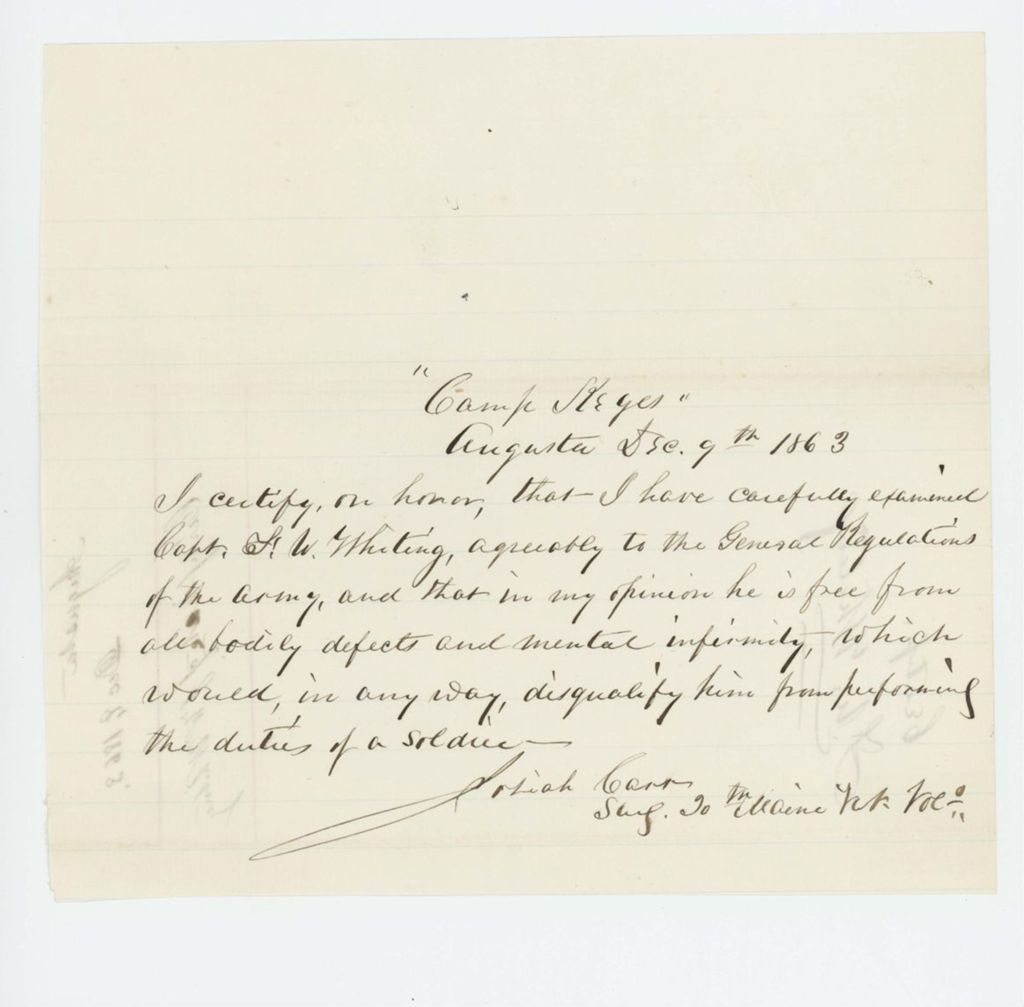 "Camp Keyes"
Augusta Dec. 9th 1863
I certify, on honor, that I have carefully examined
Capt. F. W. Whiting, agreeably to the General Regulations
of the Army, and that in my opinion he is free from
all bodily defects and mental infirmity, which
would, in any way, disqualify him from performing
the duties of a soldier—
Josiah Carr
Surg. 30th Maine Vet. Vols